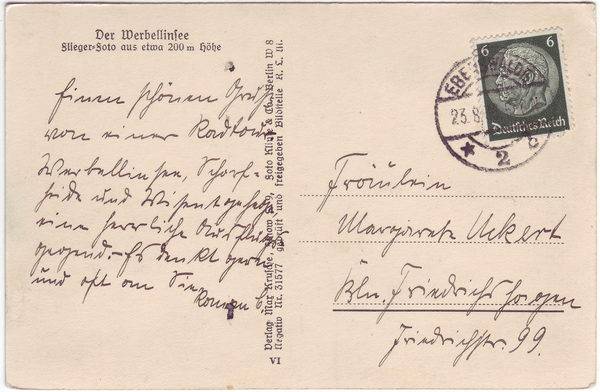 Der Werbellinsee
Flieger-Foto aus etwa 200 m Höhe
Einen schönen Gruß
von einer Radtour
Werbellinsee, Schorf-
heide und Wisentgehege
eine herrliche Ausflug
gegend. Es denkt gern
und oft an Sie
Verlag Max Kruschke
Foto Klinke & Co., Berlin W 8
Negativ Nr. 31577 geprüft und freigegeben Bildstelle R. L. M.
VI
6 6
Deutsches Reich
23.8.
* 2 c
Fräulein
Margarete Uckert
Bln. Friedrichshagen
Friedrichstr. 99.